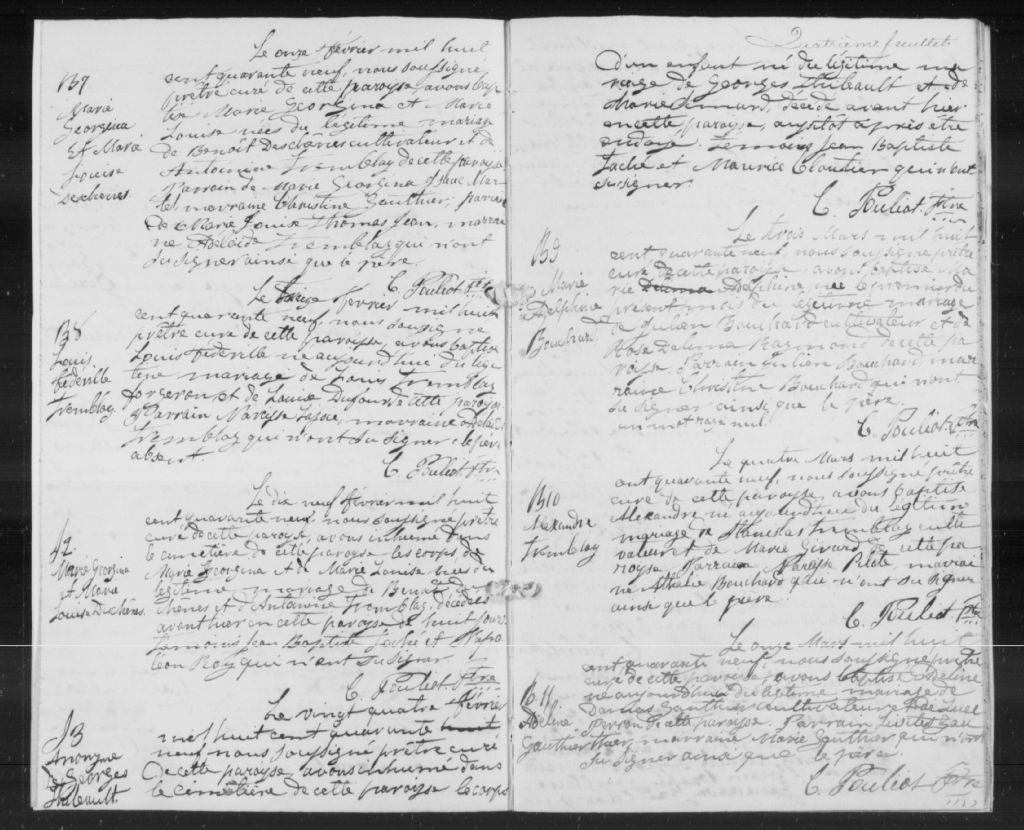 Le onze février mil huit
B7
Marie
Georgina
Et Marie
Louise
Descherres.
cent quarante neuf, nous soussigné
prêtre curé de cette paroisse, avons bap
tisé Marie Georgina et Marie
Louise nées du légitime mariage
de Benoît Deschênes cultivateur et de
Antoinine Tremblay de cette paroisse
Parrain de Marie Georgina Isaac Mar
tel marraine Christine Gauthier; parrain
de Marie Louise Thomas Jean, marrai
ne Adelaide Tremblay qui n'ont
su signer ainsi que le père.
C. Pouliot Ptre
Le février mil huit
B8
Louis
fédéville
Tremblay
cent quarante neuf, nous soussigné
prêtre curé de cette paroisse, avons baptisé
Louis fédéville né aujourd'hui du légi
time mariage de Louis Tremblay
forgeron et de Louise Dufour de cette paroisse
Parrain Narcisse Lajoie, marraine Adelaide
Tremblay qui n'ont su signer le père
absent.
C. Pouliot Ptre
Le dix neuf février mil huit
S2
Marie Georgina
et Marie
Louise Duchênes.
cent quarante neuf, nous soussigné prêtre
curé de cette paroisse, avons inhumé dans
le cimetière de cette paroisse les corps de
Marie Georgina et de Marie Louise nées du
légitime mariage de Benoît Des
chênes et d'Antoinine Tremblay, décédées
avant hier en cette paroisse de huit jours
Témoins Jean Baptiste Taché et Napo
léon Roy qui n'ont su signer.
C. Pouliot Ptre
Le vingt quatre février
S3
Anonyme
de Georges
Thibeault.
mil huit cent quarante
neuf nous soussigné prêtre curé
de cette paroisse avons inhumé dans
le cimetière de cette paroisse le corps
Quatrième feuillet
d'un enfant né du légitime ma
riage de Georges Thibault et de
Marie Simard, décédé avant hier
en cette paroisse, aussitôt après être
ondoyé. Témoins Jean Baptiste
Taché et Maurice Cloutier qui n'ont
su signer.
C. Pouliot Ptre
Le trois Mars mil huit
B9
Marie
Delphine
Bouchard.
cent quarante neuf, nous soussigné prêtre
curé de cette paroisse, avons baptisé Ma
rie Delphine, née le premier du
présent mois du légitime mariage
de Julien Bouchard cultivateur et de
Rose Delima Raymond de cette pa
roisse. Parrain Julien Bouchard mar
raine Christine Bouchard qui n'ont
su signer ainsi que le père.
un mot rayé nul.
C. Pouliot Ptre
Le quatre Mars mil huit
B10
Alexandre
Tremblay
cent quarante neuf, nous soussigné prêtre
curé de cette paroisse, avons baptisé
Alexandre né aujourd'hui du légitime
mariage de Stanislas Tremblay culti
vateur et de Marie Girard de cette pa
roisse, Parrain Narcisse Pilote, marrai
ne Bouchard qui n'ont su signer
ainsi que le père.
C. Pouliot Ptre
Le onze Mars mil huit
B11
Adeline
Gauthier
cent quarante neuf, nous soussigné prêtre
curé de cette paroisse, avons baptisé Adeline
née aujourd'hui du légitime mariage de
Damas Gauthier cultivateur et de
de cette paroisse. Parrain Gau
thier, marraine Marie Gauthier qui n'ont
su signer ainsi que le père.
C. Pouliot Ptre